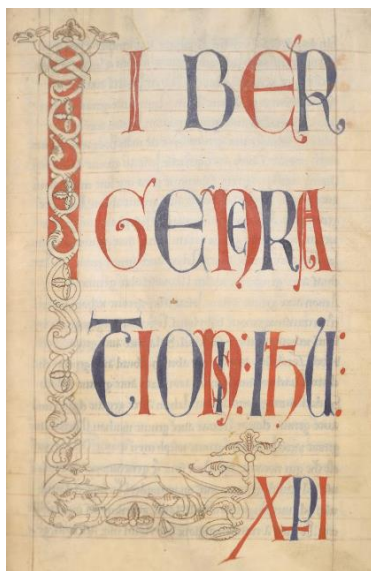 LIBER
GENERA
TIONIS: IHU:
XPI